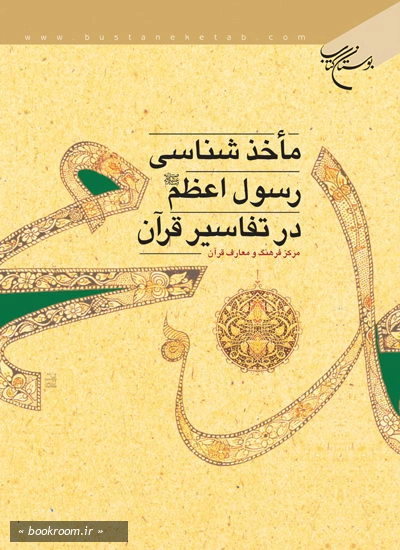 www.bustaneketab.com
بوستان کتاب
مأخذ شناسی
رسول اعظم ﷺ
در تفاسیر قرآن
مرکز فرهنگ و معارف قرآن
« bookroom.ir »